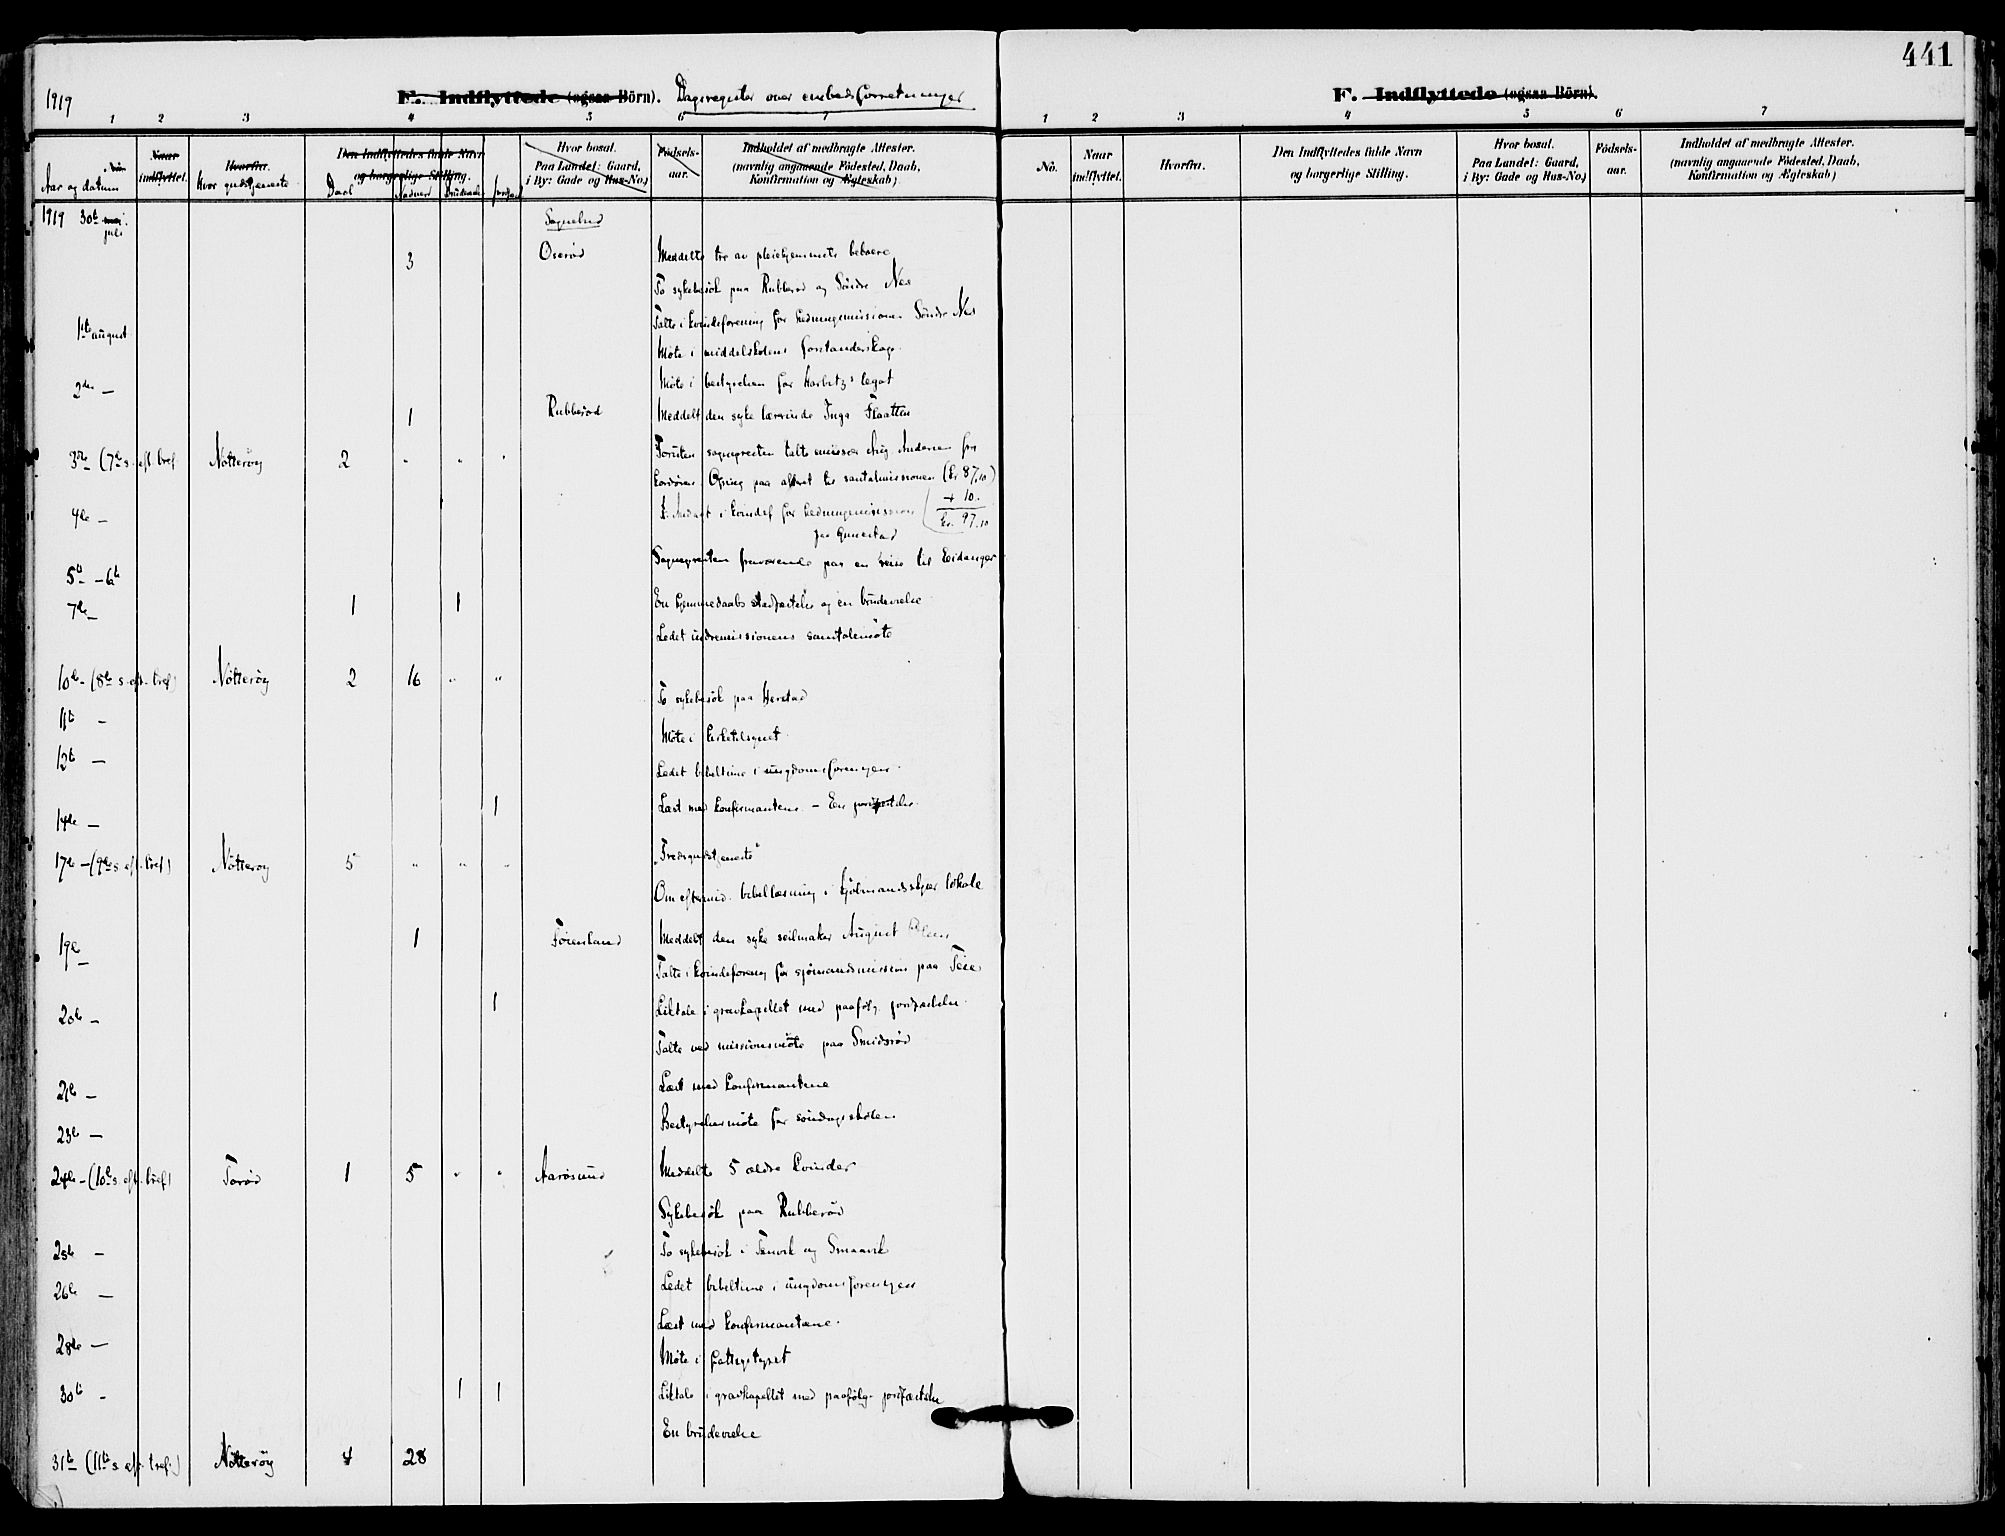 441
1919
F. Indflyttede (ogsaa Börn). Dagsregister over embedsforretninger
1 2 3 4 5 6 7
Aar og datum
Naar indflyttet.
Hvorfra.
Hvor gudstjeneste
Den Indflyttedes fulde Navn og borgerlige Stilling.
Daab Nadver Brudevielse Jordfæst
Hvor bosat.
Paa Landet: Gaard,
i By: Gade og Hus-No.)
Födsels-
aar.
Indholdet af medbragte Attester.
(navnlig angaaende Födested, Daab,
Konfirmation og Ægteskab)
1919 30te juli Sognebud
3 Oserød Meddelte tre av pleiehjemmets beboere
To sykebesök paa Rubberød og Söndre Nes
1ste august Talte i kvindeforening for hedningemissionen Söndre Nes
Möte i middelskolens forstanderskap.
2den — Möte i bestyrelsen for Harbitz's legat
1 Rubberød Meddelt den syke lærerinde Inga Flaatten
3die (7de s. eft. tref. Nötteröy 2 " " " Foruten sognepresten talte missionær Aug. Andersen fra
Ofring paa alteret til santalmissionen (kr 87,10)
+ 10.
4de — i kvindef. for hedningemissionen kr. 97,10
paa Gunnestad
5te – 6te Sognepresten fraværende paa en reise til Eidanger
7de — 1 1 En hjemmedaabs stadfæstelse og en brudevielse
Ledet indremissionens samtalemöte
10de – (8de s. eft. tref) Nötteröy 2 16 " "
To sykebesök paa Herstad
11te — Möte i kirketilsynet
12te — Ledet bibeltime i ungdomsforeningen.
14de — 1 Læst med konfirmantene. – En jordfæstelse.
17de – (9de s. eft. tref) Nötteröy 5 " " " „Fredsgudstjeneste"
Om eftermid. bibellæsning i Kjölmandsskjær lokale
19de — 1 Föienland Meddelt den syke seilmaker August Olsen
Talte i kvindeforening for sjömandsmission paa Teie
20de — 1 Liktale i gravkapellet med paafölg. jordfæstelse.
Talte ved missionsmöte paa Smidsröd
21de — Læst med konfirmantene
23de — Bestyrelsesmöte for söndagsskolen
24de – (10de s. eft. tref) Toröd 1 5 " " Aarösund Meddelte 5 ældre kvinder
Sykebesök paa Rubberöd
25de — To sykebesök i Tenvik og Smaavik
26de — Ledet bibeltime i ungdomsforeningen
28de — Læst med konfirmantene.
Möte i fattigstyret
30te - 1 1 Liktale i gravkapellet med paafölg. jordfæstelse
En brudevielse
31te (11te s. eft. tref.) Nötteröy 4 28
F. Indflyttede (ogsaa Börn).
1 2 3 4 5 6 7
No.
Naar
indflyttet.
Hvorfra.
Den Indflyttedes fulde Navn
og borgerlige Stilling.
Hvor bosat.
Paa Landet: Gaard,
i By: Gade og Hus-No.)
Födsels-
aar.
Indholdet af medbragte Attester.
(navnlig angaaende Födested, Daab,
Konfirmation og Ægteskab)